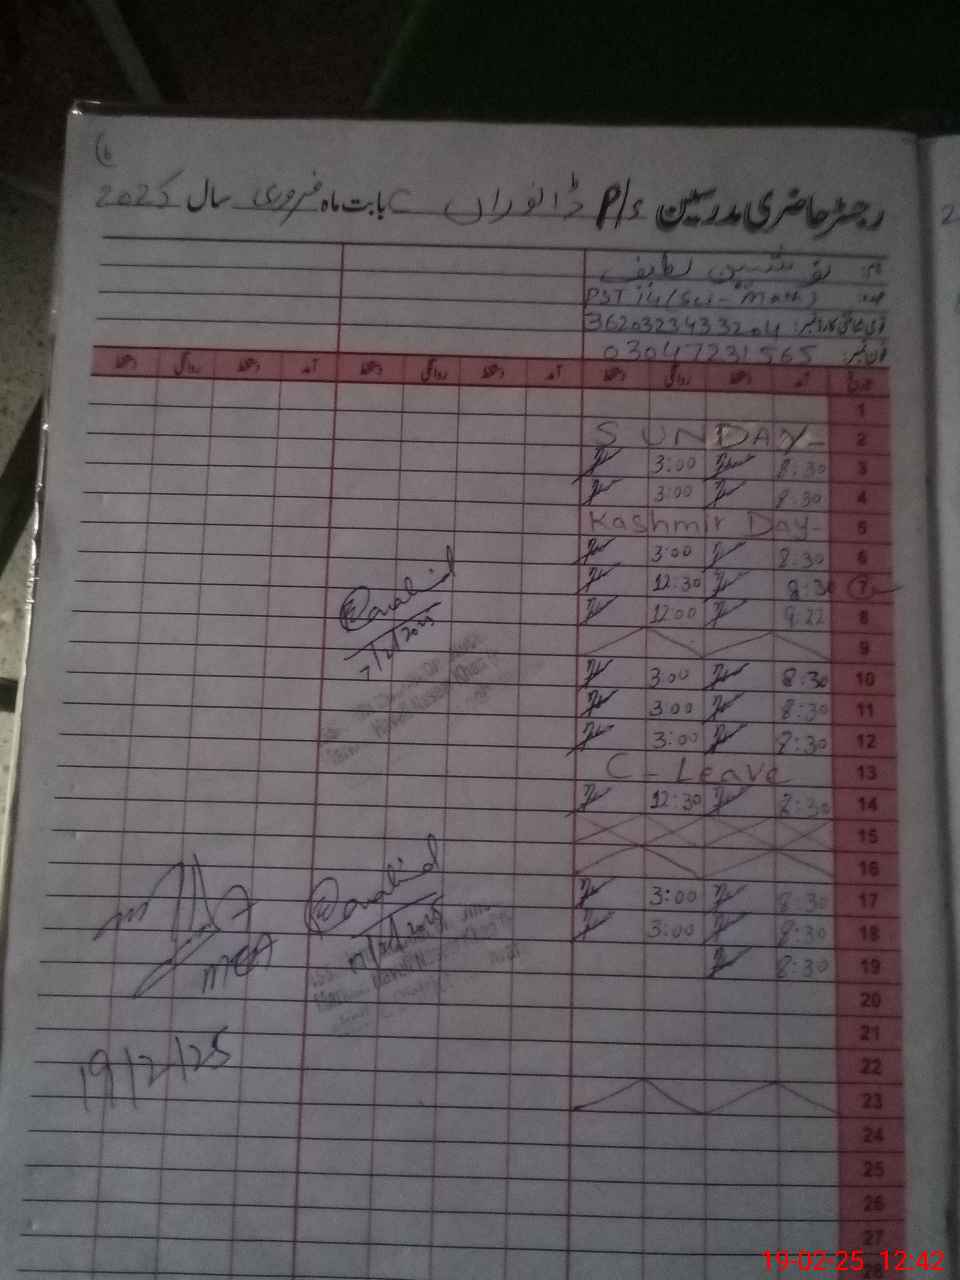 رجسٹر حاضری مدرسین P/s ڈانوراں بابت ماہ فروری سال 2025
نوشین لطیف
PST 14 (Sci-Math)
3620323433204
فون نمبر: 03047231565
تاریخ آمد دستخط روانگی دستخط آمد دستخط روانگی دستخط آمد دستخط روانگی دستخط
1
2 SUNDAY
3 8:30 3:00
4 8:30 3:00
5 Kashmir Day
6 8:30 3:00
7 8:30 12:30
8 9:22 12:00
9
10 8:30 3:00
11 8:30 3:00
12 8:30 3:00
13 C-Leave
14 8:30 12:30
15
16
17 8:30 3:00
18 8:30 3:00
19 8:30
20
21
22
23
24
25
26
27
28
7/2/2025
17/2/2025
MEA
19/2/25
19-02-25 12:42